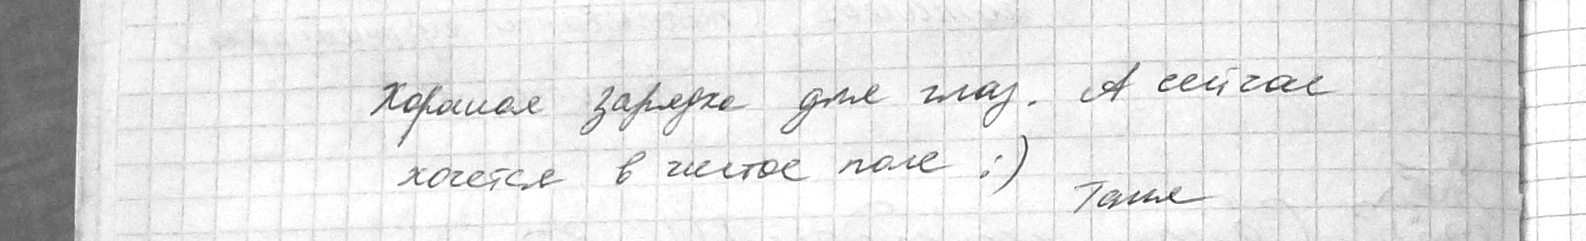 Хорошая зарядка для глаз. А сейчас
хочется в чистое поле :)
Таня